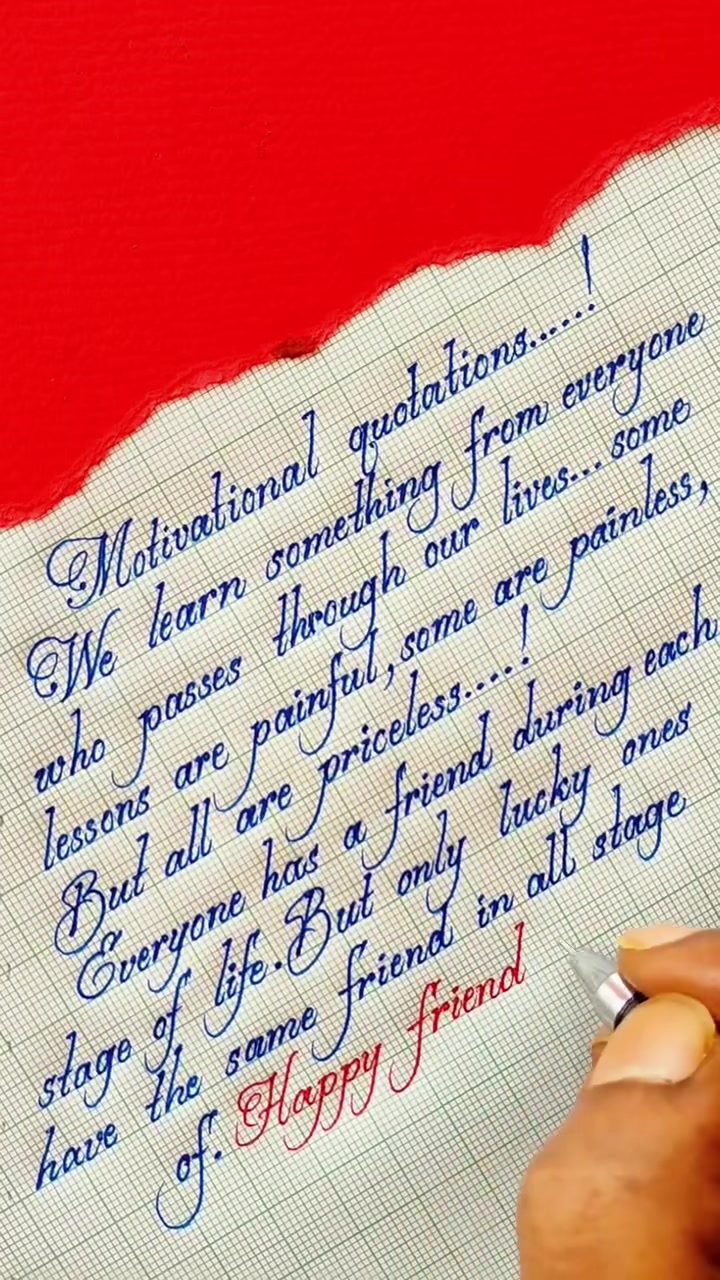 Motivational quotations.....!
We learn something from everyone
who passes through our lives... some
lessons are painful, some are painless,
But all are priceless....!
Everyone has a friend during each
stage of life. But only lucky ones
have the same friend in all stage
of. Happy friend